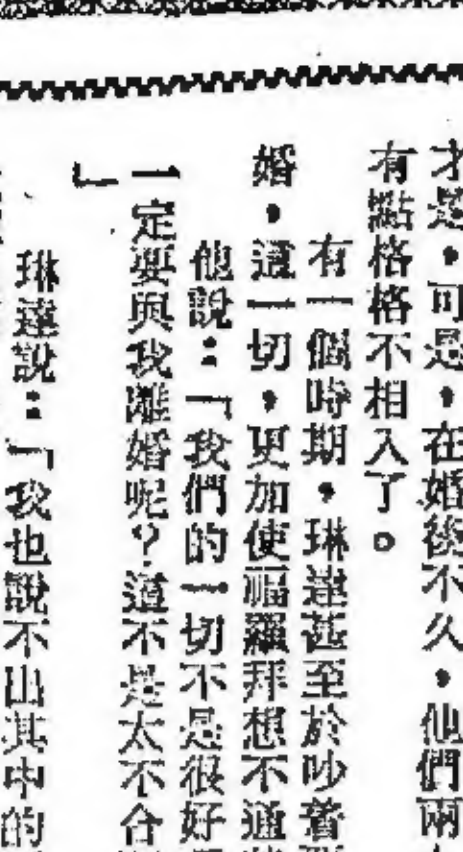 才是，可是，在婚後不久，他們兩
有點格格不相入了。
有一個時期，琳達甚至於吵着
婚，這一切，更加使福羅拜想不通
他說：「我們的一切不是很好
一定要與我離婚呢？這不是太不合
」
琳達說：「我也說不出其中的